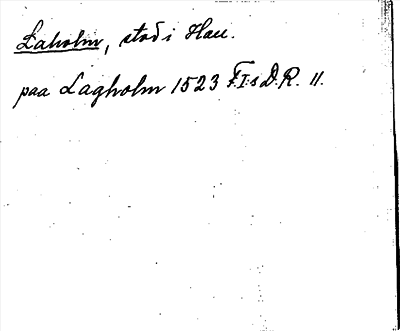 Laholm, stad i Hall.
paa Lagholm 1523 F.I:s D.R. 11.